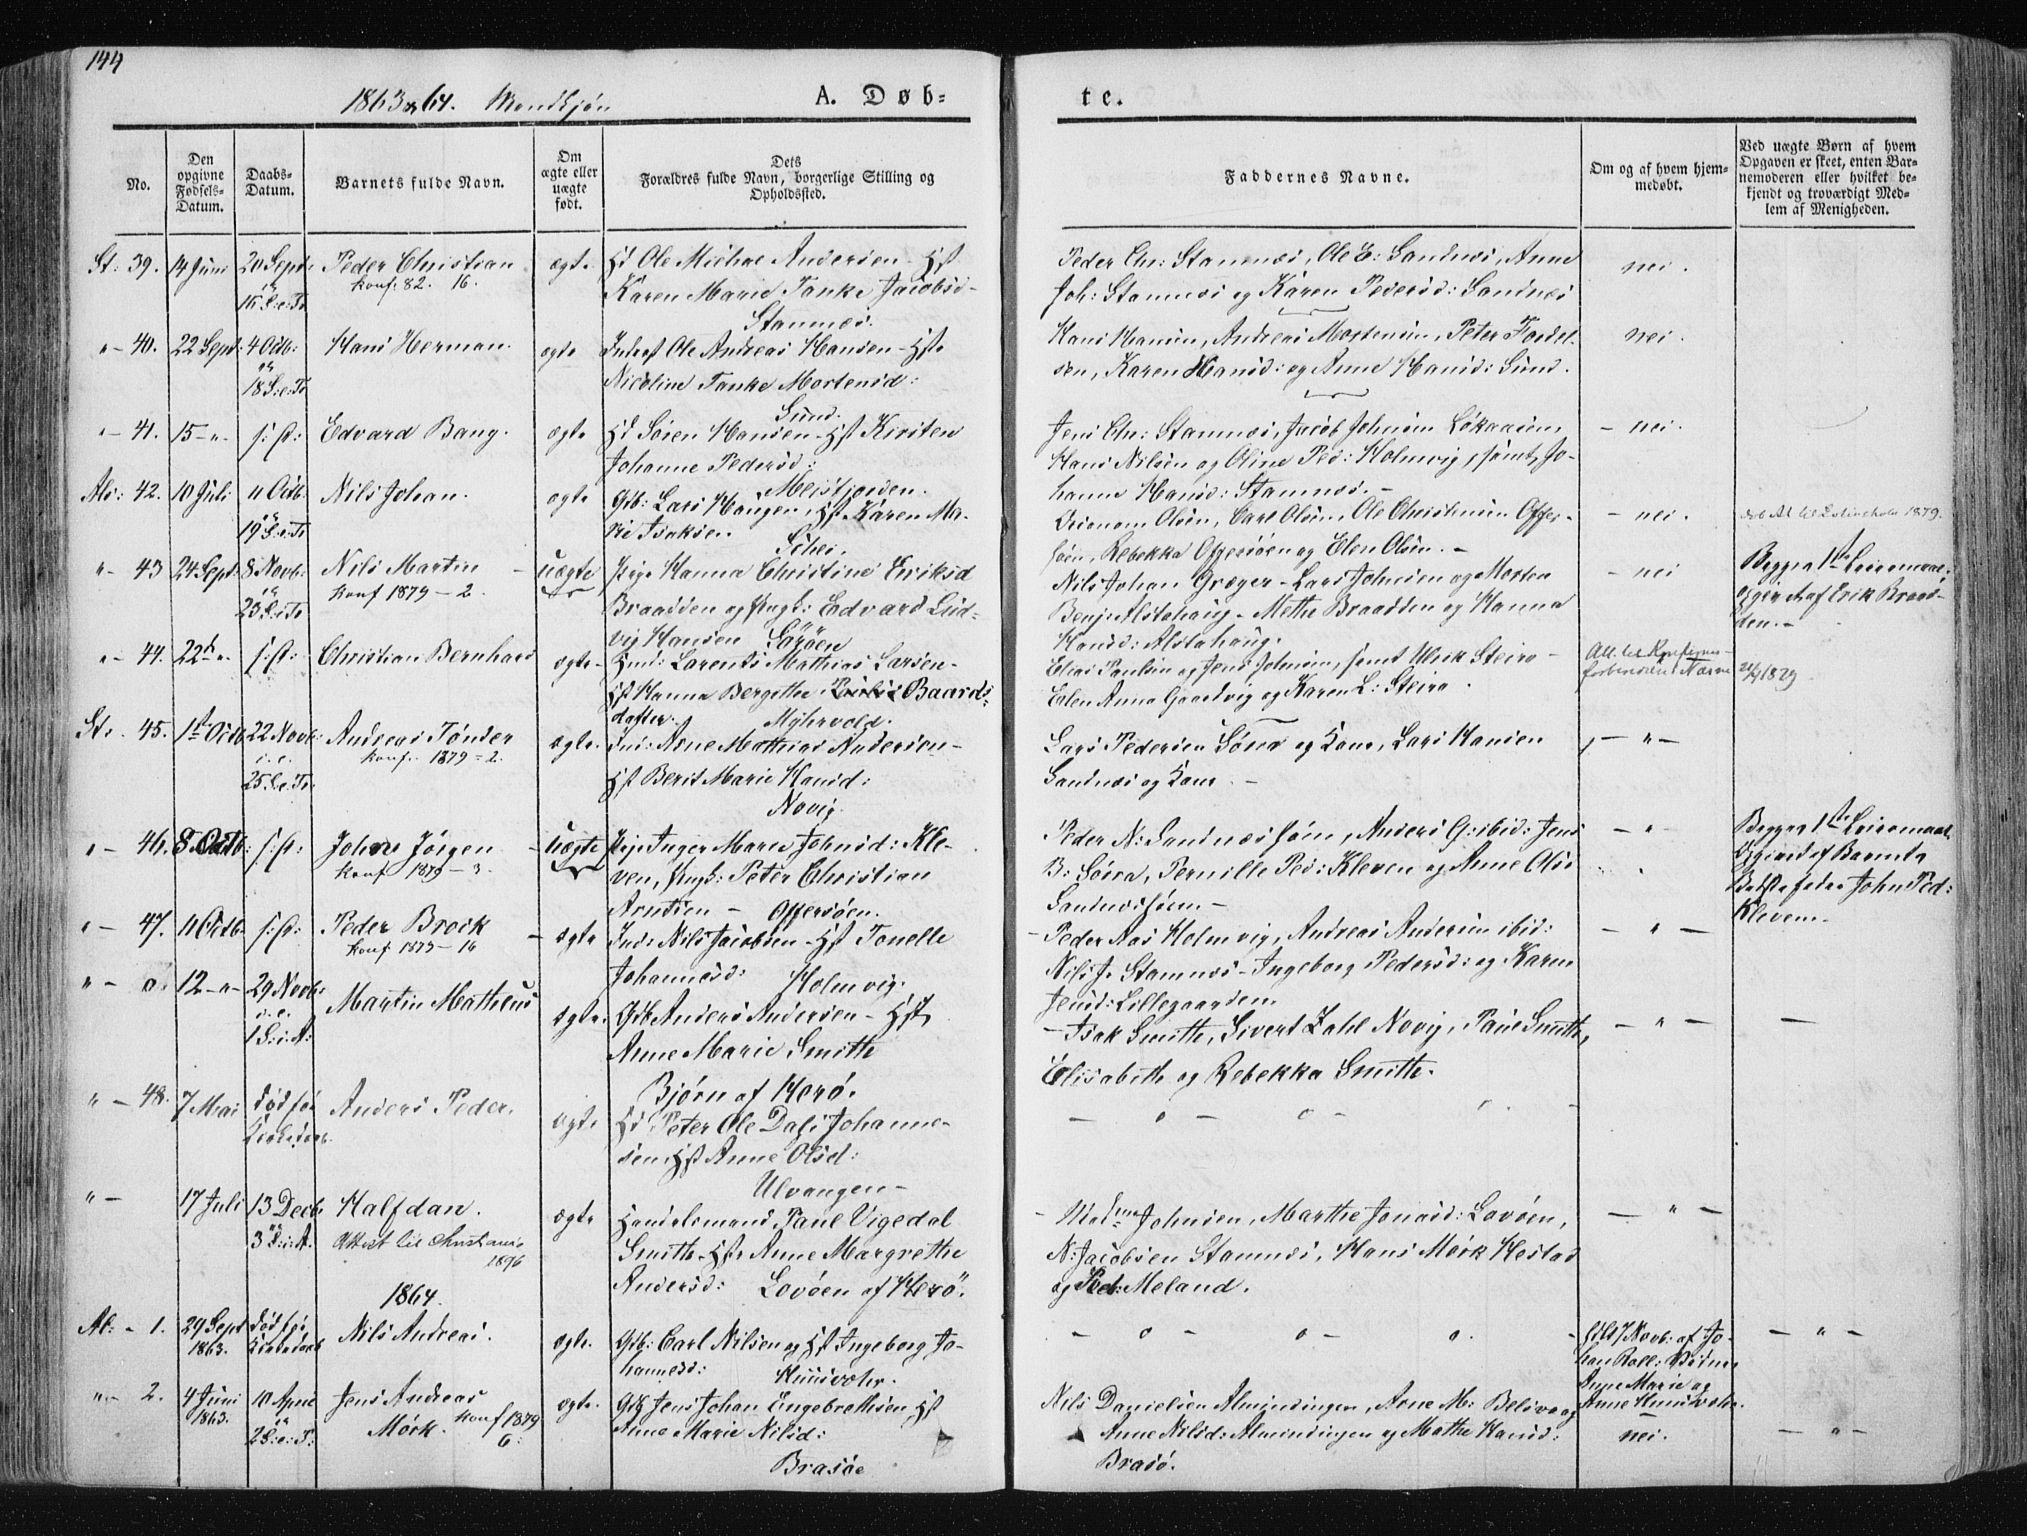 144
1863 & 64. Mandkjøn
A. Døb-
te.
No.
Den opgivne Fødsels-Datum.
Daabs-Datum.
Barnets fulde Navn.
Om ægte eller uægte født.
Dets Forældres fulde Navn, borgerlige Stilling og Opholdssted.
Faddernes Navne.
Om og af hvem hjem-medøbt.
Ved uægte Børn af hvem Opgaven er skeet, enten Bar-nemoderen eller hvilket be-kjendt og troværdigt Med-lem af Menigheden.
St: 39. 14 Juni 20 Sept: Peder Christian ægte Ole Andersen Hst
konf. 82. 16.
16 S.e.Tr. Karen Marie Tanke Jacobsd-
Stamnæs.
Peder Chr: Stamnæs, Ole E: Sandnæs, Anne
Joh: Stamnæs og Karen Pedersd: Sandnæs
nei.
"- 40. 22 Sept: 4 Octb: Hans Herman. ægte Inderst Ole Andreas Hansen - Hst.
18 S.e.Tr Nicoline Tanke Mortensd:
Sund.
Hans Hansen, Andreas Mortensen, Peter
sen, Karen Hansd: og Anne Hansd: Sund.
nei.
"- 41. 15 -"- s: st: Edvard Bang. ægte Søren Hansen - Hst Kirsten
Johanne Pedersd:
Meisfjorden.
Jens Chr: Stamnæs, Jacob Johnsen
Hans Nilsen og Oline Ped: Holmvig, samt Jo-
hanne Hansd: Stamnæs. -
- nei.
Als: 42. 10 Juli 11 Octb. Nils Johan. ægte Gdb: Lars Haugen, Hst Karen Ma-
19 S.e.Tr rie Isaksen.
Olsen, Carl Olsen, Ole Christensen Offer-
søen, Rebekka Offersøen og Elen Olsen. -
- nei.
1879.
"- 43 24 Sept: 8 Novb: Nils Martin - uægte Pige Hanna Christine Eriksd
konf 1879 - 2.
23 S.e.Tr Braadden og Ungk: Edvard Lud-
vig Hansen
Nils Johan Græger - Lars Johnsen og Morten
Benj: Alstahaug - Methe Braadten og Hanna
Hansd: Alstahaug.
- nei
Begges 1ste Leiermaal,
af Erik Braad-
den. -
"- 44. 22 -"- s: st: Christian Bernhard ægte - Lorents Mathias Larsen -
Hst Hanna Bergethe Baards-
datter. Myhrvold.
Elias Paulsen og Jens Johnsen, samt Ulrik Steiro -
Elen Anna og Karen L: Steiro.
1879
St: 45. 1st Octb. 22 Novb: Andreas Tønder ægte. Ind: Arne Mathias Andersen -
konf. 1879 - 2.
25 S.e.Tr. Hst Berit Marie Hansd:
Novig.
Lars Pedersen og Kone, Lars Hansen
Sandnæs og Kone. -
- " -
"- 46. 8 Octb: s: st: Johan Jørgen - uægte Pige Inger Maria Johnsd: Kle-
konf 1879 - 3.
ven, Ungk: Peter Christian
Arntsen - Offersøen.
Peder N: Sandnæssjøen, Anders G: ibid: Jens
B: Pernille Ped: Kleven og Anne Ols:
Sandnæssjøen -
- " -
Begges 1ste Leiermaal.
Opgived af Barnets
John Ped:
Kleven -
"- 47. 11 Octb. s: st: Peder Brock - ægte Ind: Nils Jacobsen - Hst Tonelle
konf 1879 - 16
Johannesd: Holmvig.
- Peder Aas Holmvig, Andreas Andersen ibid:
Nils J. Stamnæs - Ingeborg Pedersd: og Karen
Jensd: Lillegaarden.
- " -
"- o. 12 -"- 29 Novb: Martin Matheus ægte. Gdb Anders Andersen - Hst
1 S. i. A: Anne Marie Smith
Bjørn af Herø.
- Isak Smith, Sivert Zahl Novig, Paul Smith,
Elisabeth og Rebekka Smith.
- " -
-
"- 48. 7 Mai død før Anders Peder. ægte. Peter Ole Dass Johanne-
sen Hst Anne Olsd:
Ulvangen -
- o - o
"- 17 Juli 13 Decb Halfdan. ægte Handelsmand, Paul Vigedal
3 S: i: A. Attest til Christiania
1896
Smith - Hst. Anne Margrethe
Andersd: Lovøen af Herø.
Johnsen, Marthe Jonasd: Lovøen,
N: Jacobsen Stamnæs, Hans Mørk Hestad
og Meland.
- " -
1864.
Al: - 1. 29 Sept død før Nils Andreas. ægte. Gdb: Carl Nilsen og Hst Ingeborg Jo-
1863.
hannesd:
- o - o - o.
17 Novb: af Jo-
Anne Marie og
- " -
"- 2. 4 Juni 10 April Jens Andreas ægte. Gdb Jens Johan Engebrethsen Hst
1863.
2 S: e: P: Mørk. konf 1879
6:
Anne Marie Nilsd:
Brasøe
Nils Danielsen Almindingen, Arne M: Belsvaag
Anne Nilsd: Almindingen og Mathe Hansd:
Brasø.
nei.
- " -